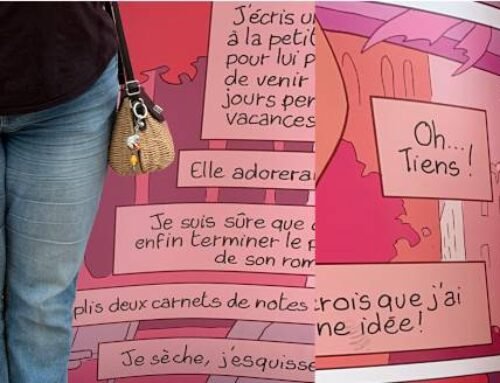 J'écris u
à la petit
pour lui p
de venir
jours per
vacances
Elle adorerai
Je suis sûre que
enfin terminer le p
de son rom
plis deux carnets de notes
Je sèche, j'esquisse
Oh...
Tiens !
crois que j'ai
ne idée !